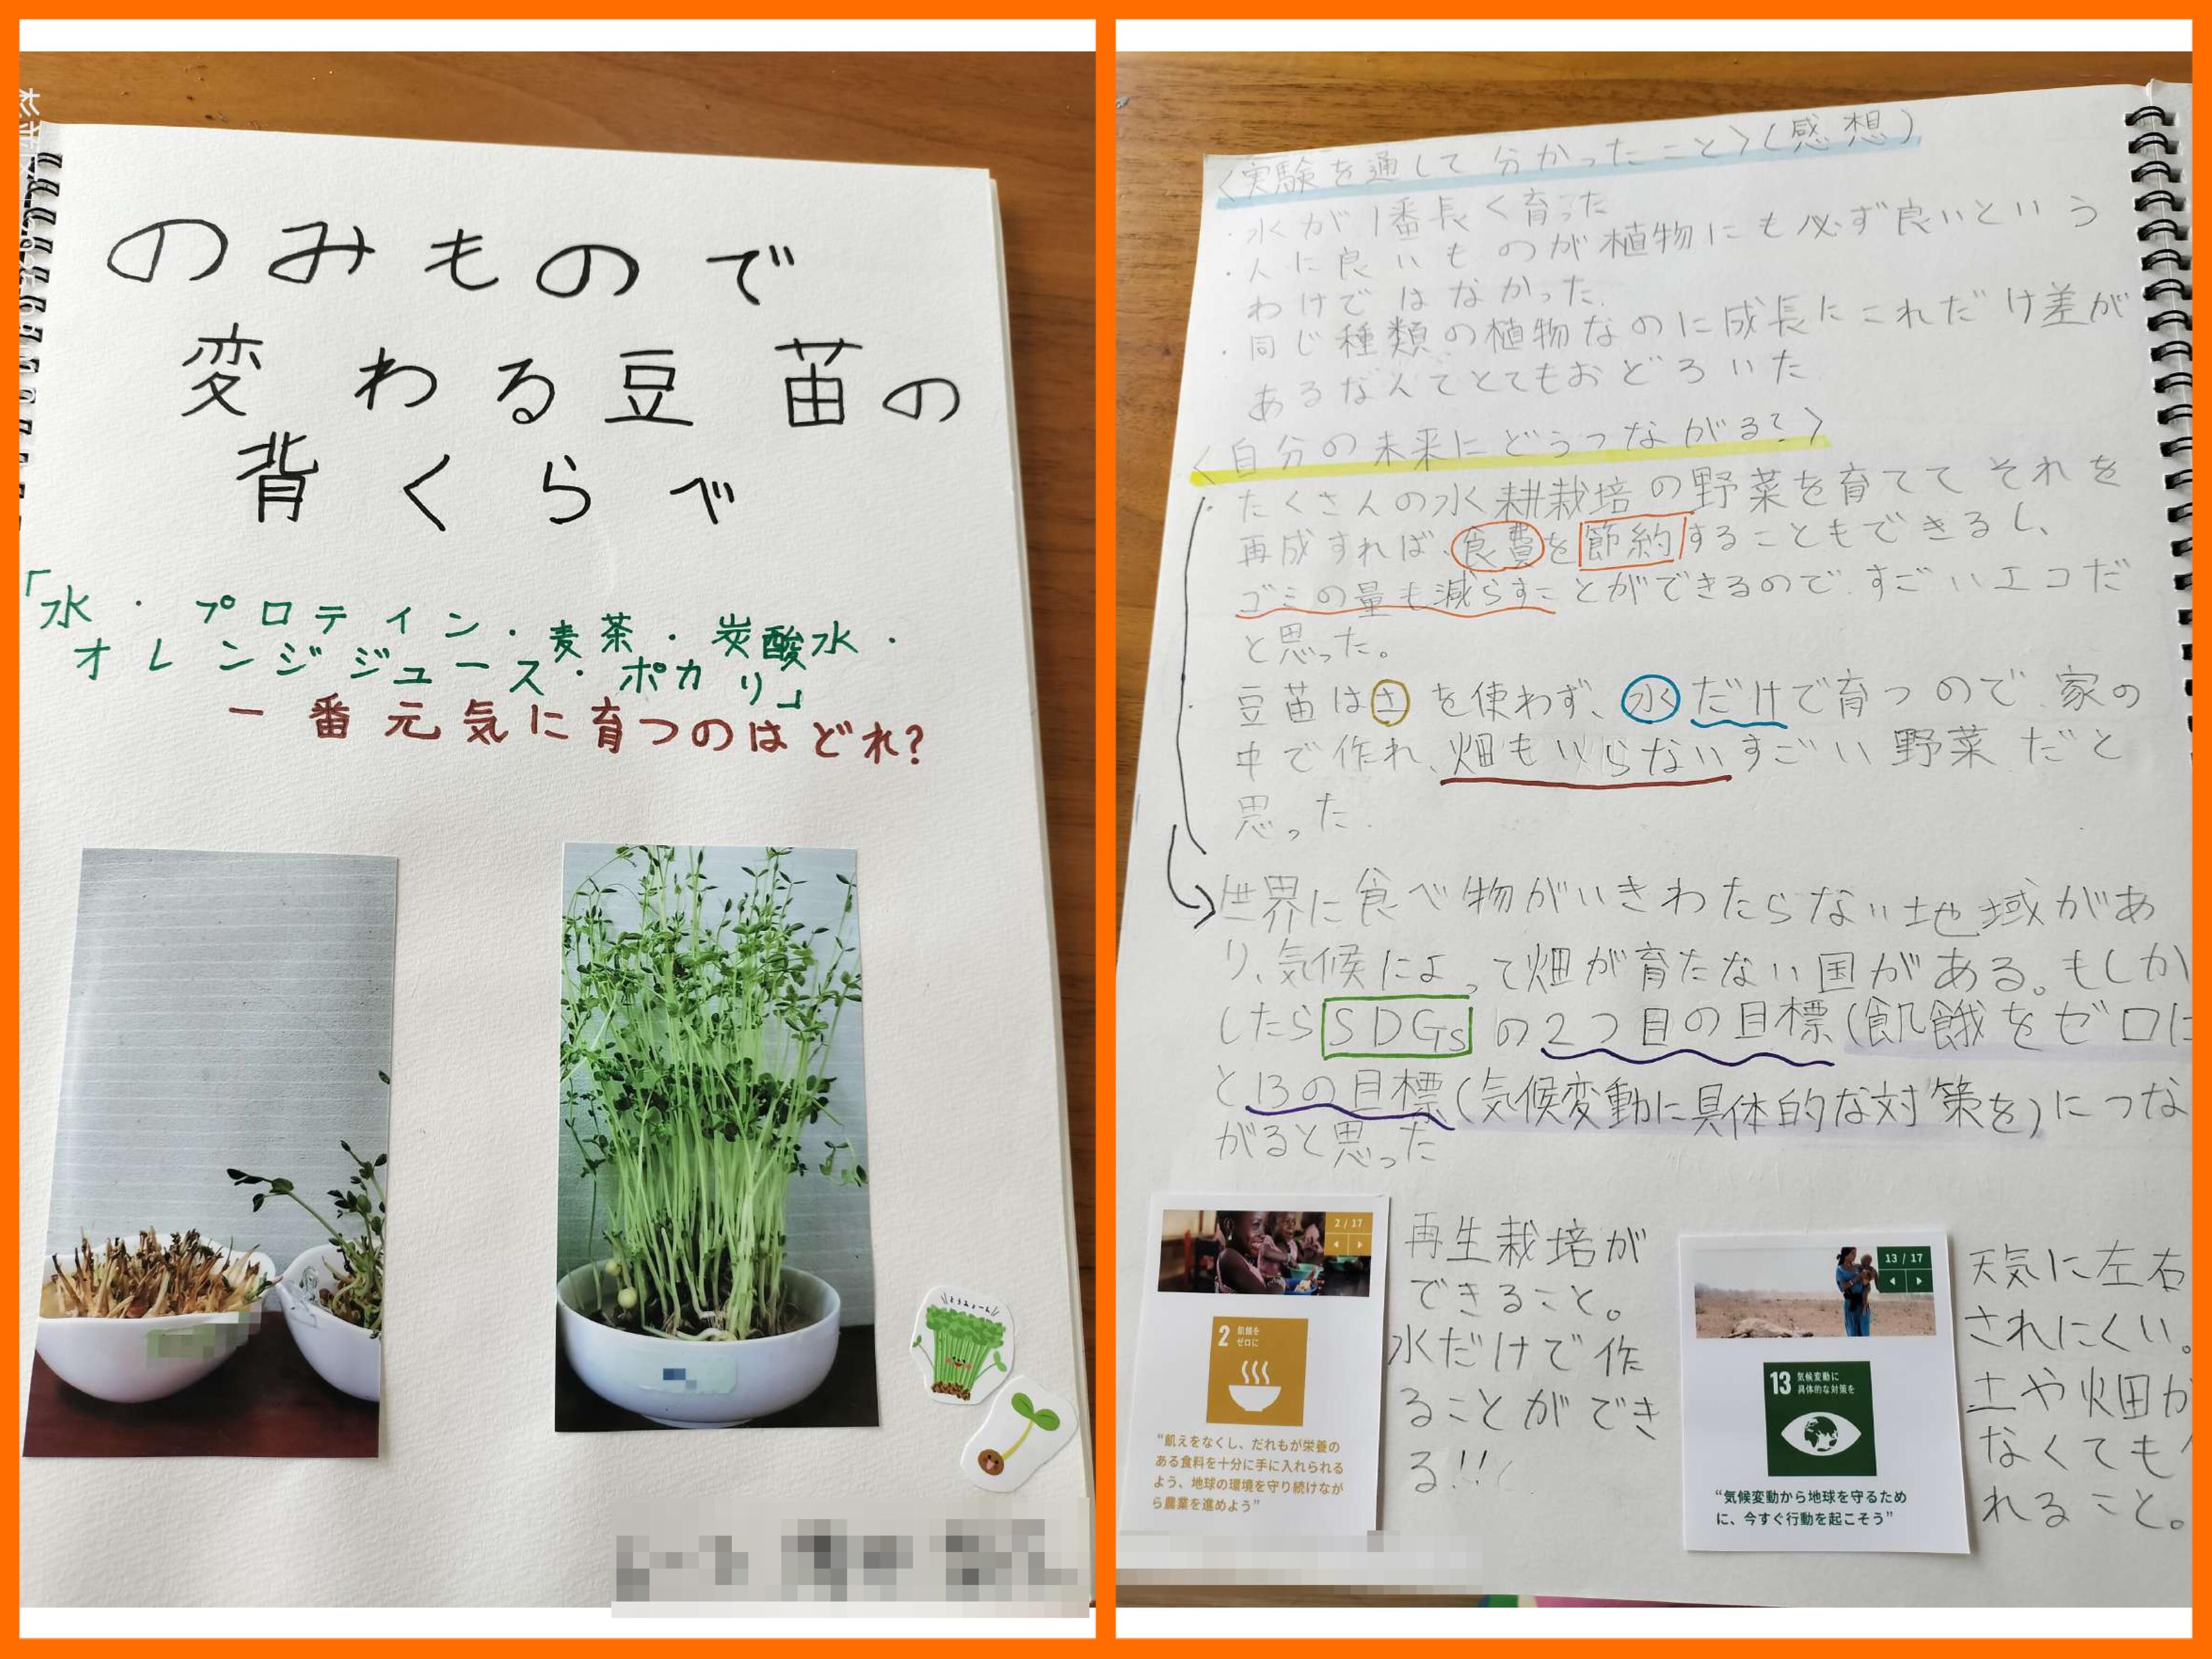 のみもので
変わる豆苗の
背くらべ
「水・プロテイン・麦茶・炭酸水・
オレンジジュース・ポカリ」
一番元気に育つのはどれ?
とうみょーん
<実験を通して分かったこと>(感想)
・水が1番長く育った
・人に良いものが植物にも必ず良いという
わけではなかった.
・同じ種類の植物なのに成長にこれだけ差が
あるなんてとてもおどろいた.
<自分の未来にどうつながる?>
・たくさんの水耕栽培の野菜を育ててそれを
再成すれば、食費を節約することもできるし、
ゴミの量も減らすことができるので、すごいエコだ
と思った。
・豆苗は土を使わず、水だけで育つので、家の
中で作れ、畑もいらないすごい野菜だと
思った.
世界に食べ物がいきわたらない地域があ
り、気候によって畑が育たない国がある。もしか
したらSDGsの2つ目の目標(飢餓をゼロに
と13の目標(気候変動に具体的な対策を)につな
がると思った
2 / 17
2 飢餓を
ゼロに
“飢えをなくし、だれもが栄養の
ある食料を十分に手に入れられる
よう、地球の環境を守り続けなが
ら農業を進めよう”
再生栽培が
できること。
水だけで作
ることができ
る!!
13 / 17
13 気候変動に
具体的な対策を
“気候変動から地球を守るため
に、今すぐ行動を起こそう”
天気に左右
されにくい。
土や畑が
なくても
れること。